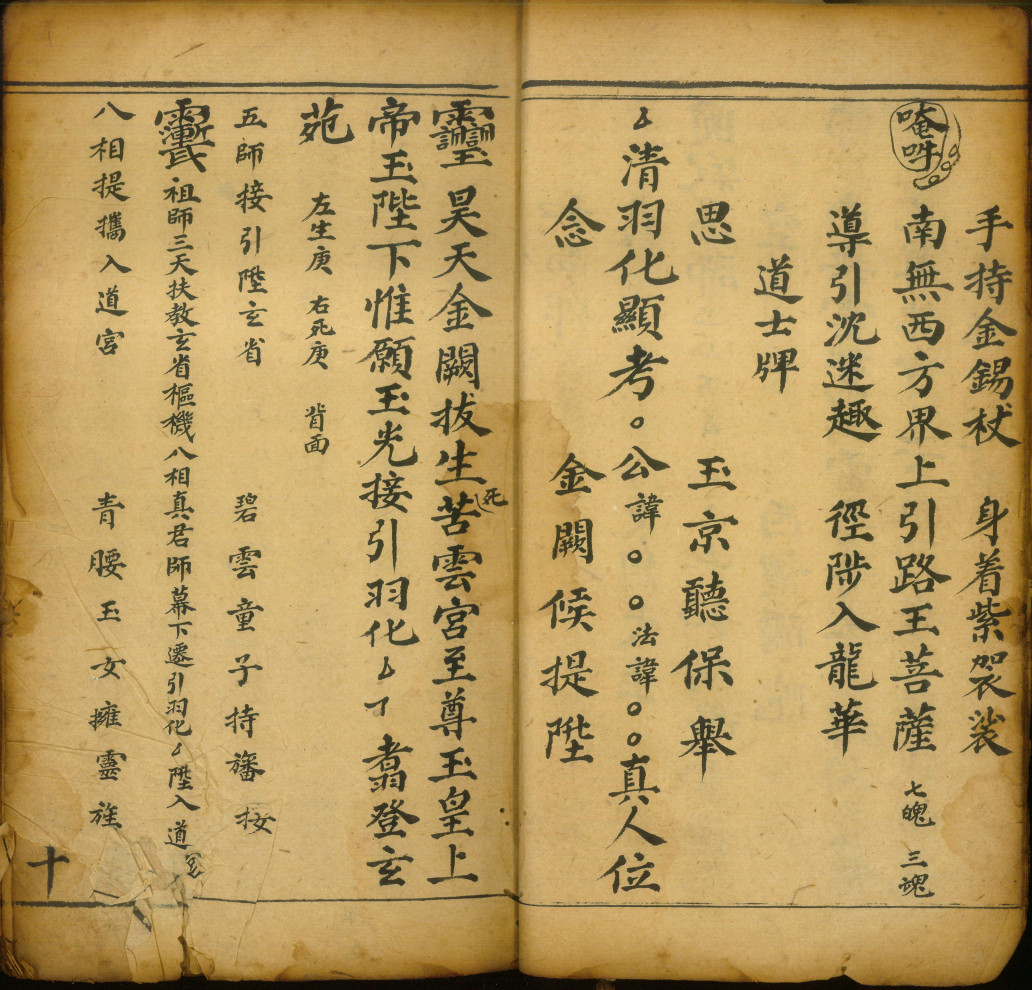 手持金錫杖 身着紫袈裟
唵吽 南無西方界上引路王菩薩 七魄 三魂
導引沈迷趣 徑陟入龍華
道士牌
思 玉京聽保舉
清羽化顯考○公諱○○法諱○○真人位
念 金闕候提陞
昊天金闕拔生死苦雲宮至尊玉皇上
帝玉陛下惟願玉光接引羽化 翥登玄
苑 左生庚 右死庚 背面
五師接引陞玄省 碧雲童子持旛接
祖師三天扶教玄省樞機八相真君師幕下遷引羽化 陞入道宮
八相提攜入道宮 青腰玉女擁靈旌
十